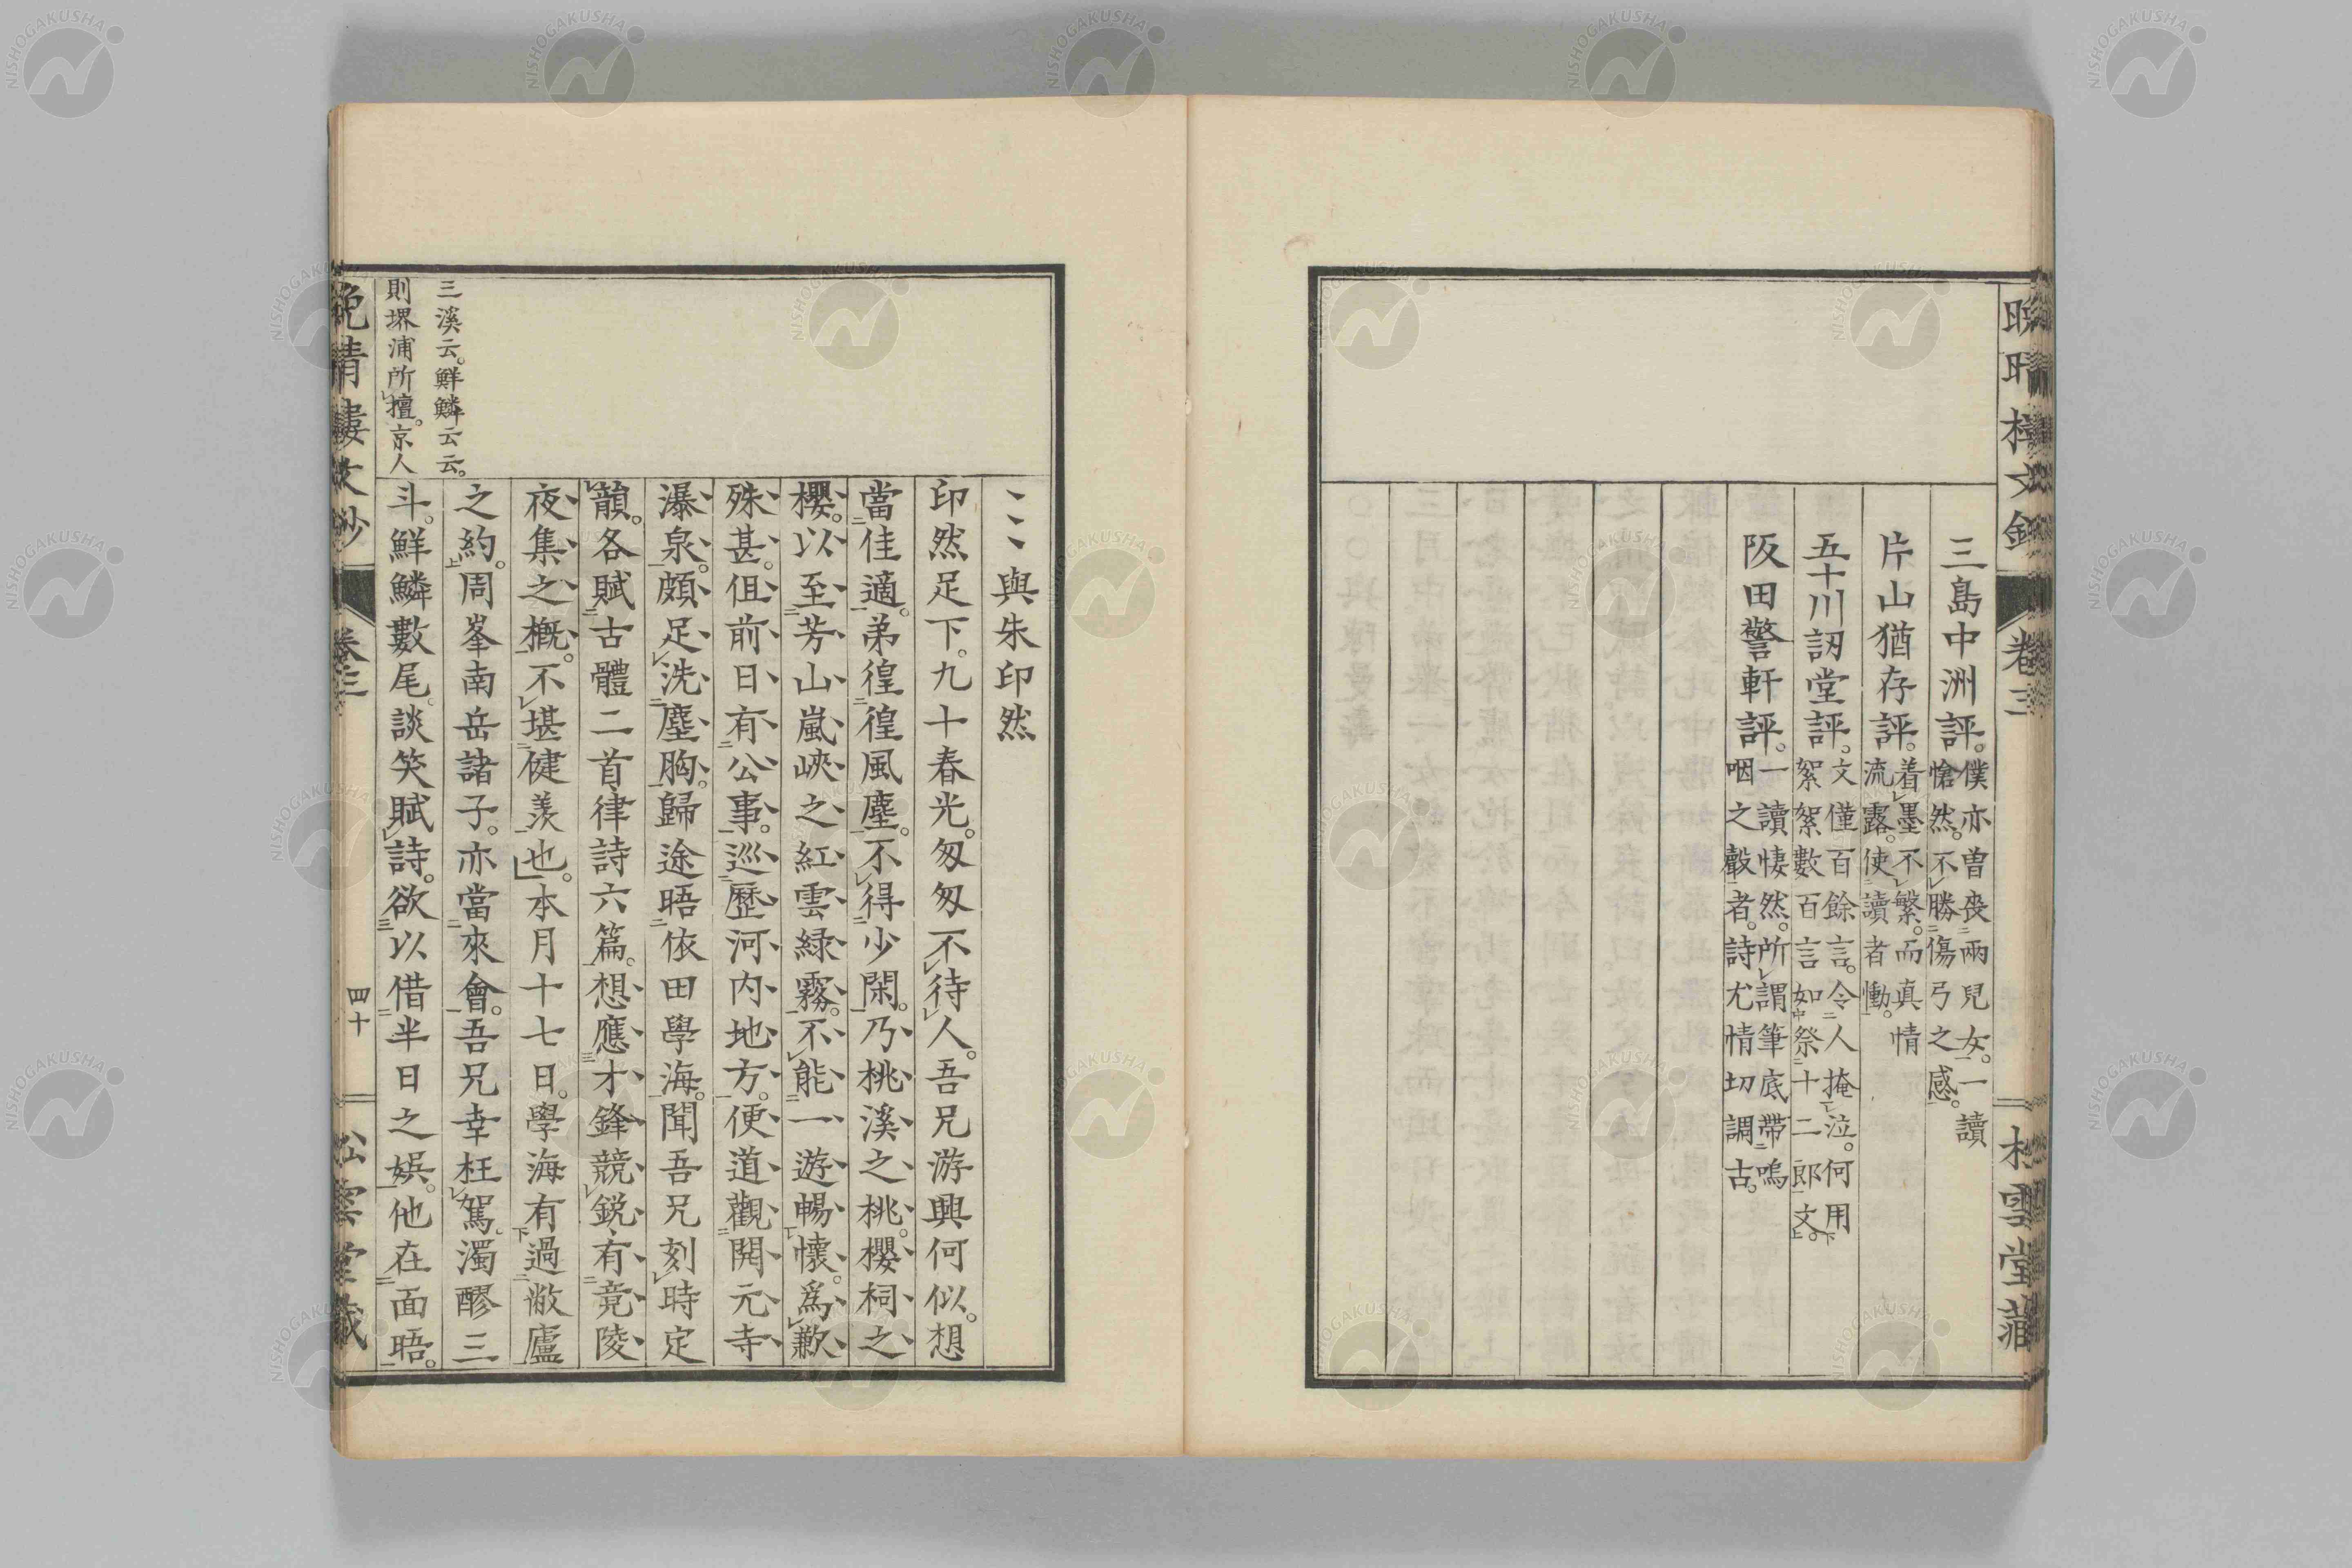 三島中洲評。僕亦曽喪兩兒女。一讀
愴然。不勝傷弓之感。
片山猶存評。着墨不繁。而真情
流露。使讀者慟。
五十川訒堂評。文僅百餘言。令人掩泣。何用
絮絮數百言如祭十二郎文。
阪田警軒評。一讀悽然。所謂筆底帶嗚
咽之聲者。詩尤情切調古。
卷三
與朱印然
印然足下。九十春光。匆匆不待人。吾兄游興何似。想
當佳適。弟徨徨風塵。不得少閑。乃桃溪之桃。櫻祠之
櫻。以至芳山嵐峽之紅雲緑霧。不能一遊暢懷。爲歉
殊甚。但前日有公事。巡歷河内地方。便道觀開元寺
瀑泉。頗足洗塵胸。歸途晤依田學海。聞吾兄刻時定
韻。各賦古體二首律詩六篇。想應才鋒競鋭。有竟陵
夜集之概。不堪健羨也。本月十七日。學海有過敝廬
之約。周峯南岳諸子。亦當來會。吾兄幸枉駕。濁醪三
斗。鮮鱗數尾。談笑賦詩。欲以借半日之娯。他在面晤。
三溪云。鮮鱗云云。
則堺浦所擅。京人
卷三
四十